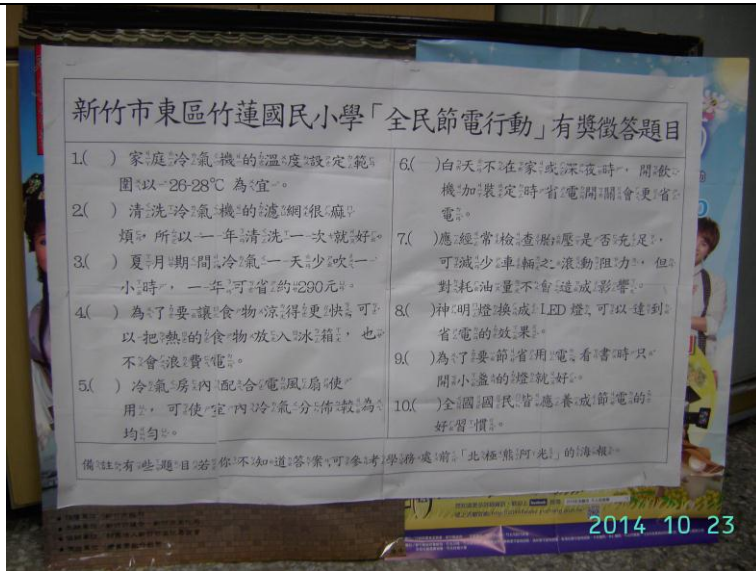 新竹市東區竹蓮國民小學「全民節電行動」有獎徵答題目
1.(　) 家庭冷氣機的溫度設定範
圍以 26-28℃ 為宜。
2.(　) 清洗冷氣機的濾網很麻
煩，所以一年清洗一次就好。
3.(　) 夏月期間冷氣一天少吹一
小時，一年可省約290元。
4.(　) 為了要讓食物涼得更快可
以把熱的食物放入冰箱，也
不會浪費電。
5.(　) 冷氣房內配合電風扇使
用，可使室內冷氣分佈較為
均勻。
6.(　)白天不在家或深夜時，開飲
機加裝定時省電開關會更省
電。
7.(　)應經常檢查胎壓是否充足，
可減少車輛之滾動阻力，但
對耗油量不會造成影響。
8.(　)神明燈換成 LED 燈，可以達到
省電的效果。
9.(　)為了要節省用電，看書時只
開小盞的燈就好。
10.(　)全國國民皆應養成節電的
好習慣。
備註:有些題目若你不知道答案，可參考學務處前「北極熊阿光」的海報。
2014 10 23